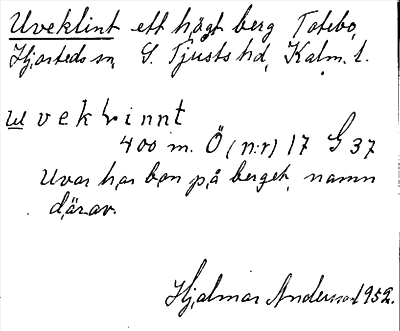 Uveklint ett högt berg Totebo,
Hjorteds sn, S. Tjusts hd, Kalm. l.
uvekrinnt
400 m. Ö (n:r) 17 G 37
Uvar har bon på berget, namn
därav.
Hjalmar Andersson 1952.